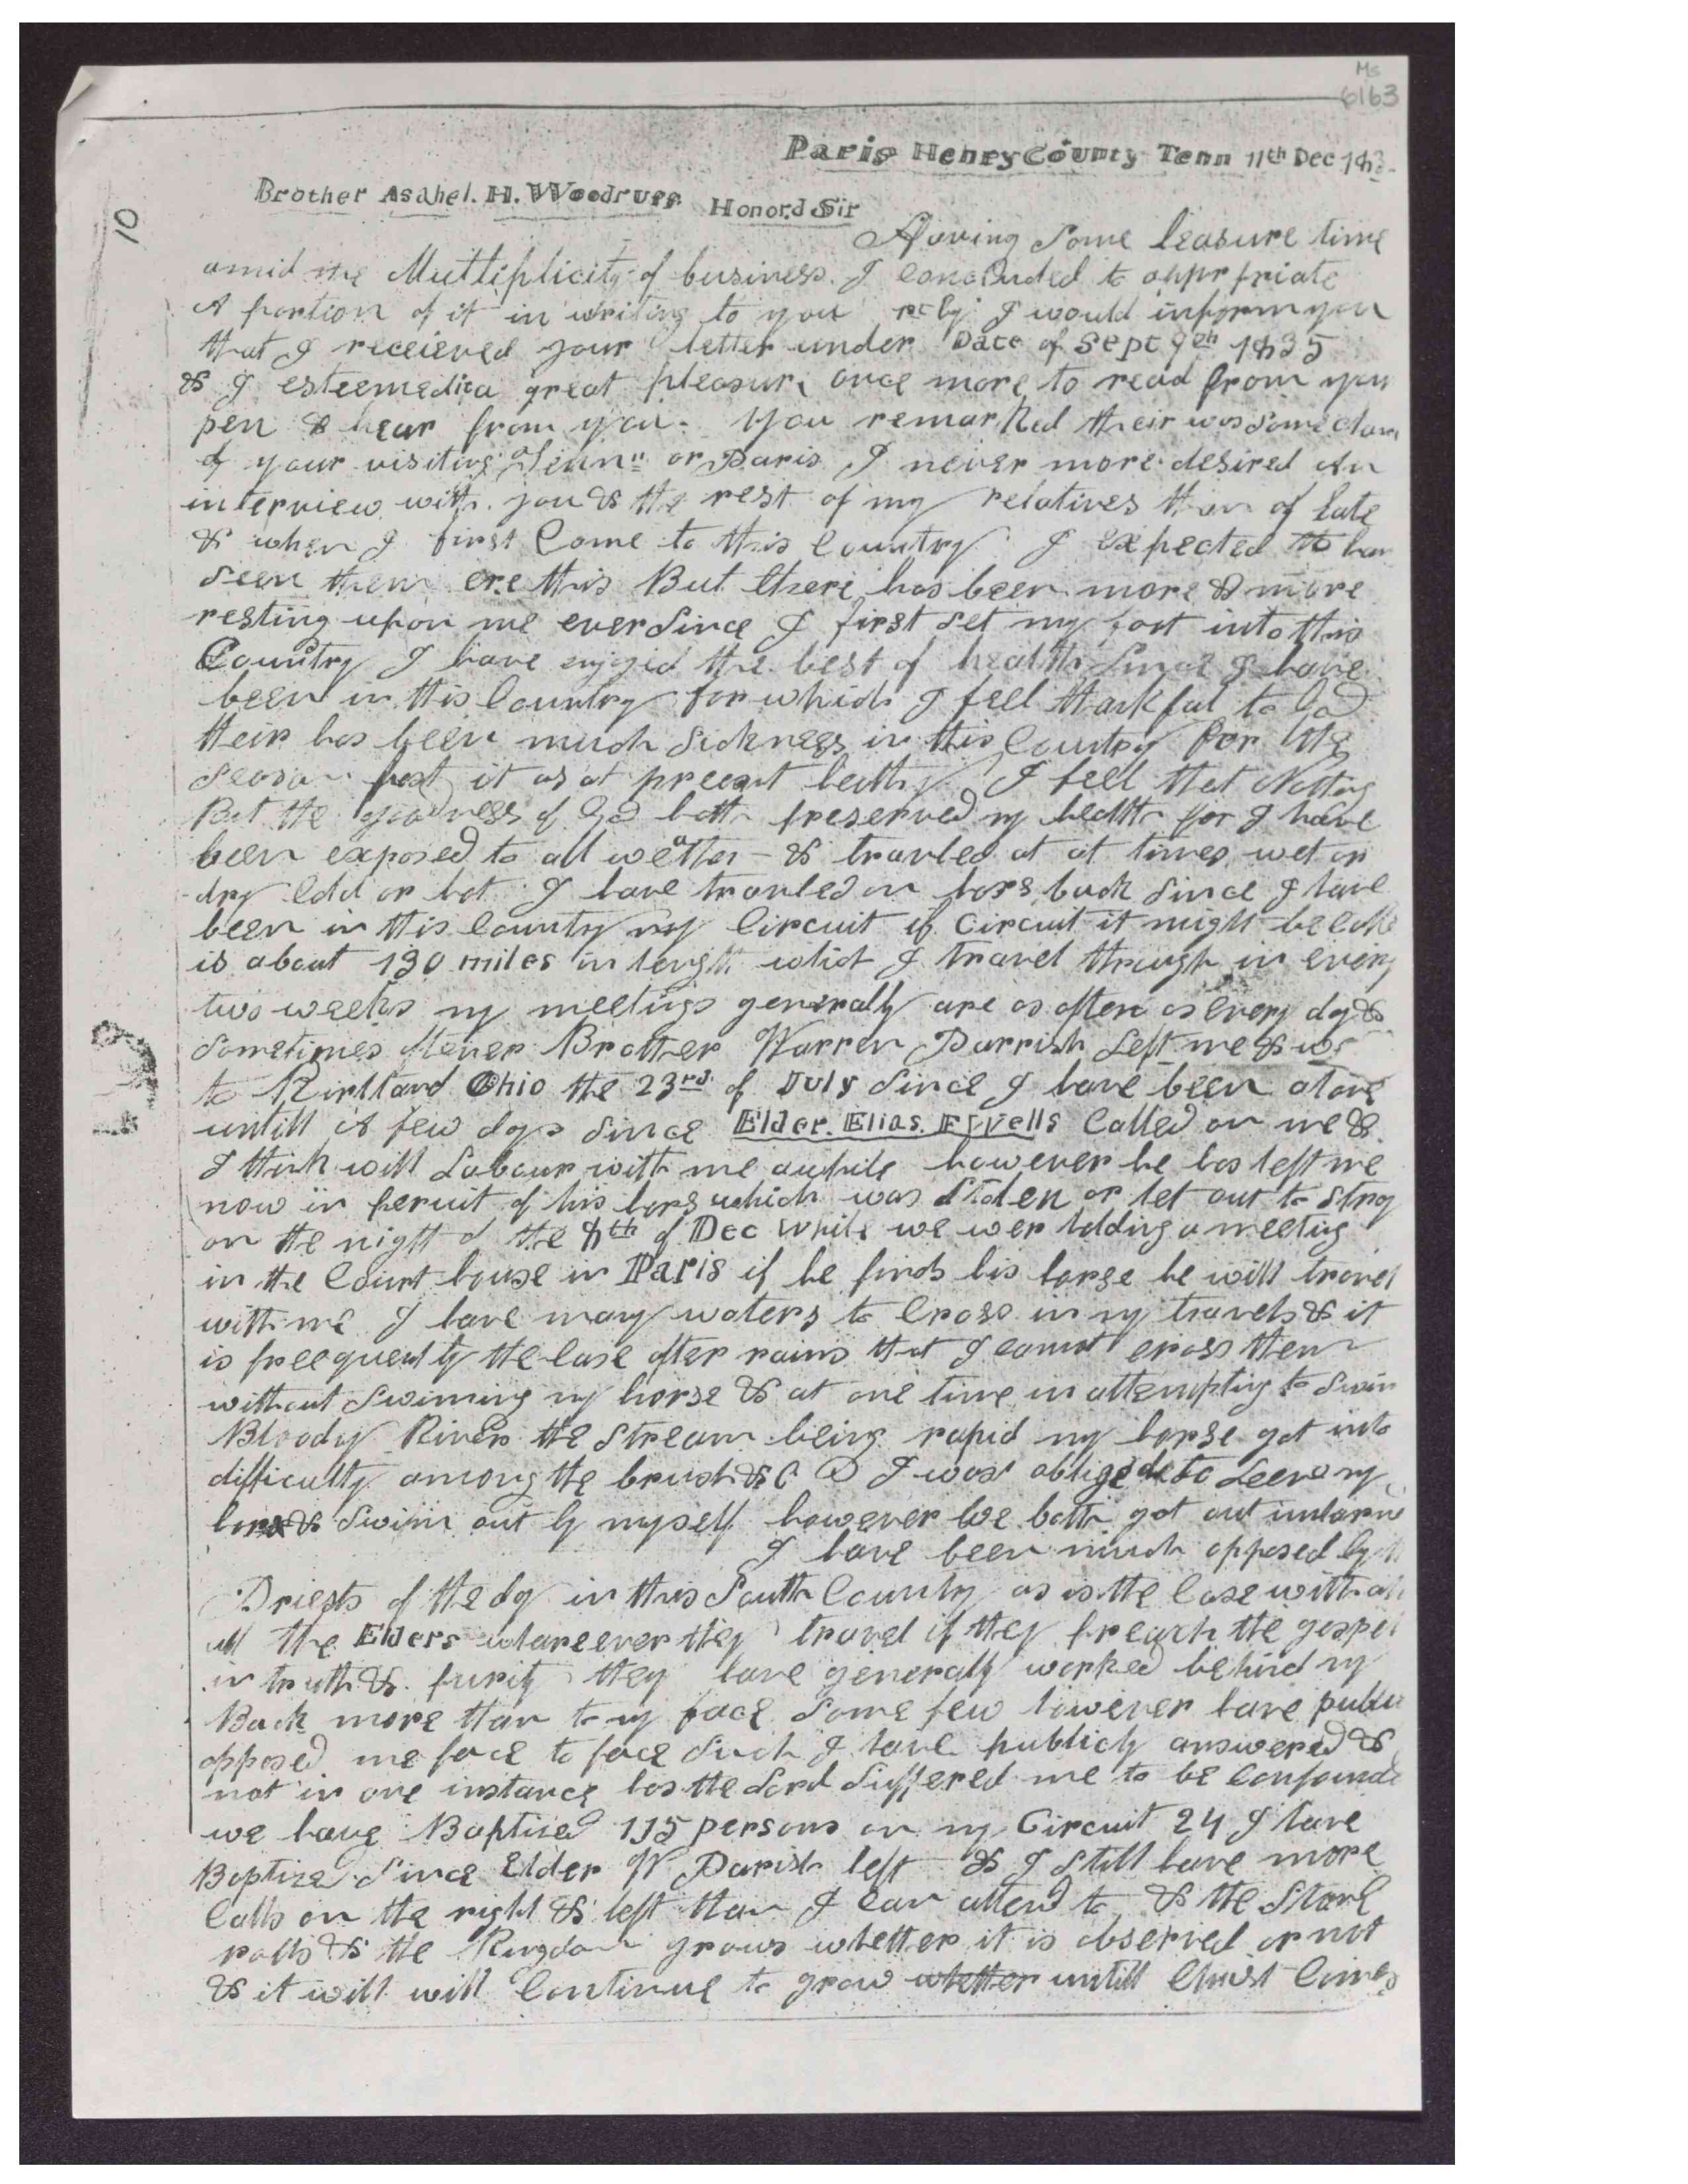 Ms
6163
Paris Henry County Tenn 11th Dec 183
10
Brother Asahel. H. Woodruff Honord Sir
Having Some leasure time
amid the Multiplicity of business. I concluded to apprpriate
A portion of it in writing to you I would inform you
that I receieved your letter under Date of Sept 9th 1835
& I esteemed it a great pleasure once more to read from you
pen & hear from you. You remarked their was some
of your visiting Tenn" or Paris I never more desired An
interview with you & the rest of my relatives than of late
& when I first Came to this Country I expected to hav
Seen them ere this But there has been more & more
resting upon me ever Since I first Set my foot into this
Country I have enjoyed the best of health Since I have
been in this Country for which I feel thankful to God
their has been much Sickness in this Country for the
Season past it as at present healthy I feel that Nothing
But the goodness of God hath preserved my health for I have
been exposed to all weather - & traveled at at times wet or
dry Cold or hot I have traveled on hors back Since I have
been in this Country my Circuit if Circuit it might be
is about 130 miles in length which I travel through in every
two weeks my meetings generally are as often as every day &
Sometimes oftener Brother Warren Parrish Left me &
to Kirtland Ohio the 23rd of July Since I have been alone
untill A few days Since Elder. Elias. F. Wells Called on me &
I think will Labour with me awhile however he has left me
now in persuit of his hors which was Stolen or let out to stray
on the night of the 8th of Dec while we wer holding a meeting
in the Court house in Paris if he finds his horse he will travel
with me I have many waters to Cross in my travels & it
is freequently the Case after rains that I cannot cross them
without Swiming my horse & at one time in attempting to Swim
Bloody River the Stream being rapid my horse got into
difficulty among the brush &C I was obliged to Leeve my
hors & Swim out by myself however we both got out
I have been much opposed by
Priests of the day in this South County as is the Case with
all the Elders whareever they travel if they preach the gospel
in truth & purity they have generally worked behind my
Back more than to my face Some few however have
opposed me face to face Such I have publicly answered &
not in one instance has the Lord Suffered me to be
we have Baptised 115 persons on my Circuit 24 I have
Baptise Since Elder W Parish left & I Still have more
Calls on the right & left than I can attend to & the Stone
rolls & the Kingdom grows whether it is observed or not
& it will will Continue to grow whether untill Christ Comes